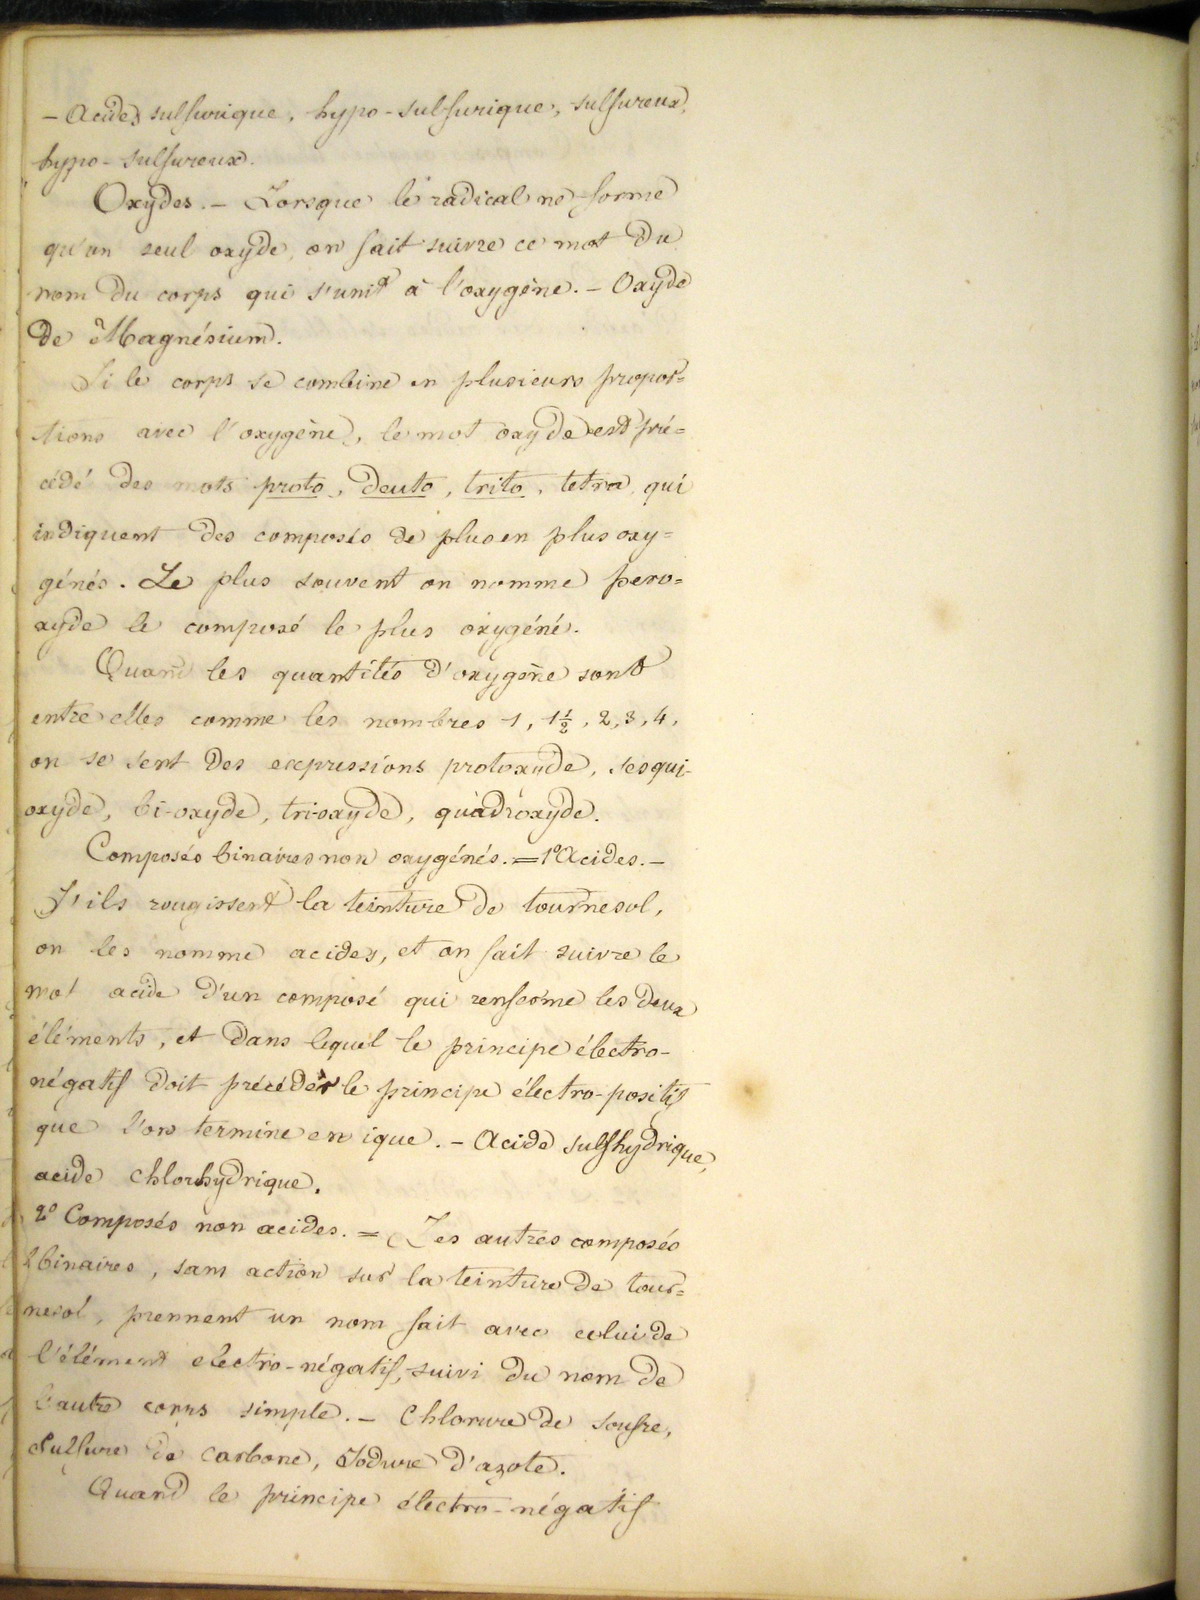 – Acides sulfurique, hypo-sulfurique, sulfureux,
hypo-sulfureux.
Oxydes. – Lorsque le radical ne forme
qu'un seul oxyde, on fait suivre ce mot du
nom du corps qui s'unit à l'oxygène. – Oxyde
de Magnésium.
Si le corps se combine en plusieurs propor=
tions avec l'oxygène, le mot oxyde est pré=
cédé des mots proto, deuto, trito, tetra, qui
indiquent des composés de plus en plus oxy=
génés. Le plus souvent on nomme pero=
xyde le composé le plus oxygéné.
Quand les quantités d'oxygène sont
entre elles comme les nombres 1, 1½, 2, 3, 4,
on se sert des expressions protoxyde, sesqui-
oxyde, bi-oxyde, tri-oxyde, quadroxyde.
Composés binaires non oxygénés. = 1° Acides. –
S'ils rougissent la teinture de tournesol,
on les nomme acides, et on fait suivre le
mot acide d'un composé qui renferme les deux
éléments, et dans lequel le principe électro-
négatif doit précéder le principe électro-positif
que l'on termine en ique. – Acide sulfhydrique,
acide chlorhydrique.
2° Composés non acides. = Les autres composés
binaires, sans action sur la teinture de tour=
nesol, prennent un nom fait avec celui de
l'élément electro-négatif, suivi du nom de
l'autre corps simple. – Chlorure de soufre,
Sulfure de carbone, Iodure d'azote.
Quand le principe électro-négatif